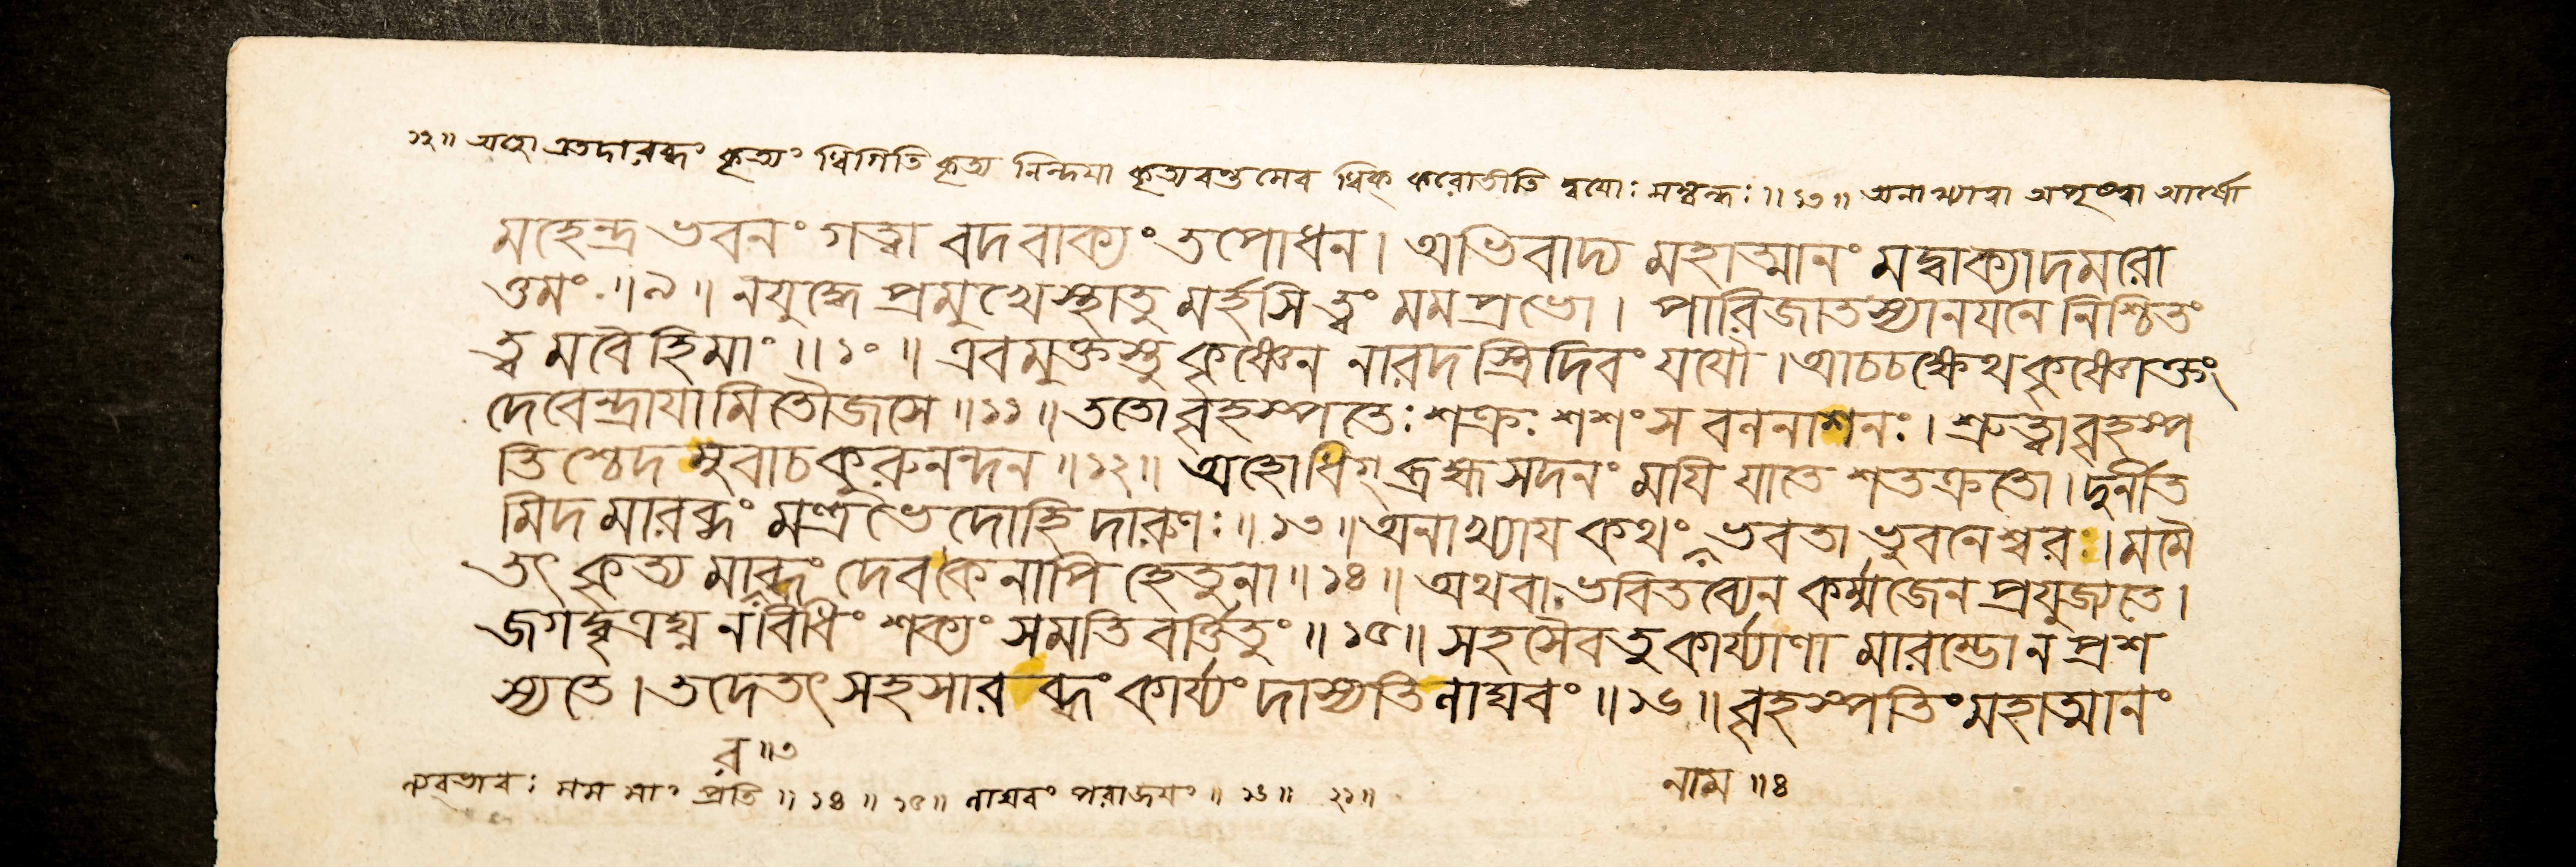 ১২॥ অহো এতদারব্ধং কৃত্যং ধিগিতি কৃত্য নিন্দয়া কৃত্যবন্তমেব ধিক্ করোতীতি দ্বয়োঃ সম্বন্ধঃ॥১৩॥ অনাখ্যায় অপৃষ্ট্বা আর্ষো
মহেন্দ্র ভবনং গত্বা বদ বাক্যং তপোধন। অভিবাদ্য মহাত্মানং মদ্বাক্যাদমরো
ত্তমং॥৯॥ নযুদ্ধে প্রমুখেস্থাতু মর্হসি ত্বং মমপ্রভো। পারিজাতস্যানযনে নিশ্চিতং
ত্ব মবৈহিমাং॥১০॥ এবমুক্তস্তু কৃষ্ণেন নারদ স্ত্রিদিবং যযৌ। আচচক্ষেথ কৃষ্ণোক্তং
দেবেন্দ্রাযামিতৌজসে॥১১॥ ততো বৃহস্পতেঃ শক্রঃ শশংস বলনাশনঃ। শ্রুত্বা বৃহস্প
তিশ্চেদ মুবাচ কুরুনন্দন॥১২॥ অহোধিগ্ ব্রহ্মসদনং মাযি যাতে শতক্রতো। দুর্নীত
মিদ মারব্ধং মন্ত্রভেদোহি দারুণঃ॥১৩॥ অনাখ্যায কথং ভবতা ভুবনেশ্বরঃ। মমৈ
তৎ কৃত্য মাব্ধং দেবকেনাপি হেতুনা॥১৪॥ অথবা ভবিতব্যেন কর্ম্মজেন প্রযুজ্যতে।
জগদ্বৃত্রঘ্ন নবিধিং শক্যং সমতি বর্ত্তিতুং॥১৫॥ সহসৈব তু কার্য্যাণা মারম্ভো ন প্রশ
স্যতে। তদেতৎ সহসারব্ধং কার্য্যং দাস্যতি লাঘবং॥১৬॥ বৃহস্পতিং মহাত্মানং
র॥৩
নাম॥৪
মম মাং প্রতি॥১৪॥১৫॥ লাঘবং পরাজয়ং॥১৬॥২১॥